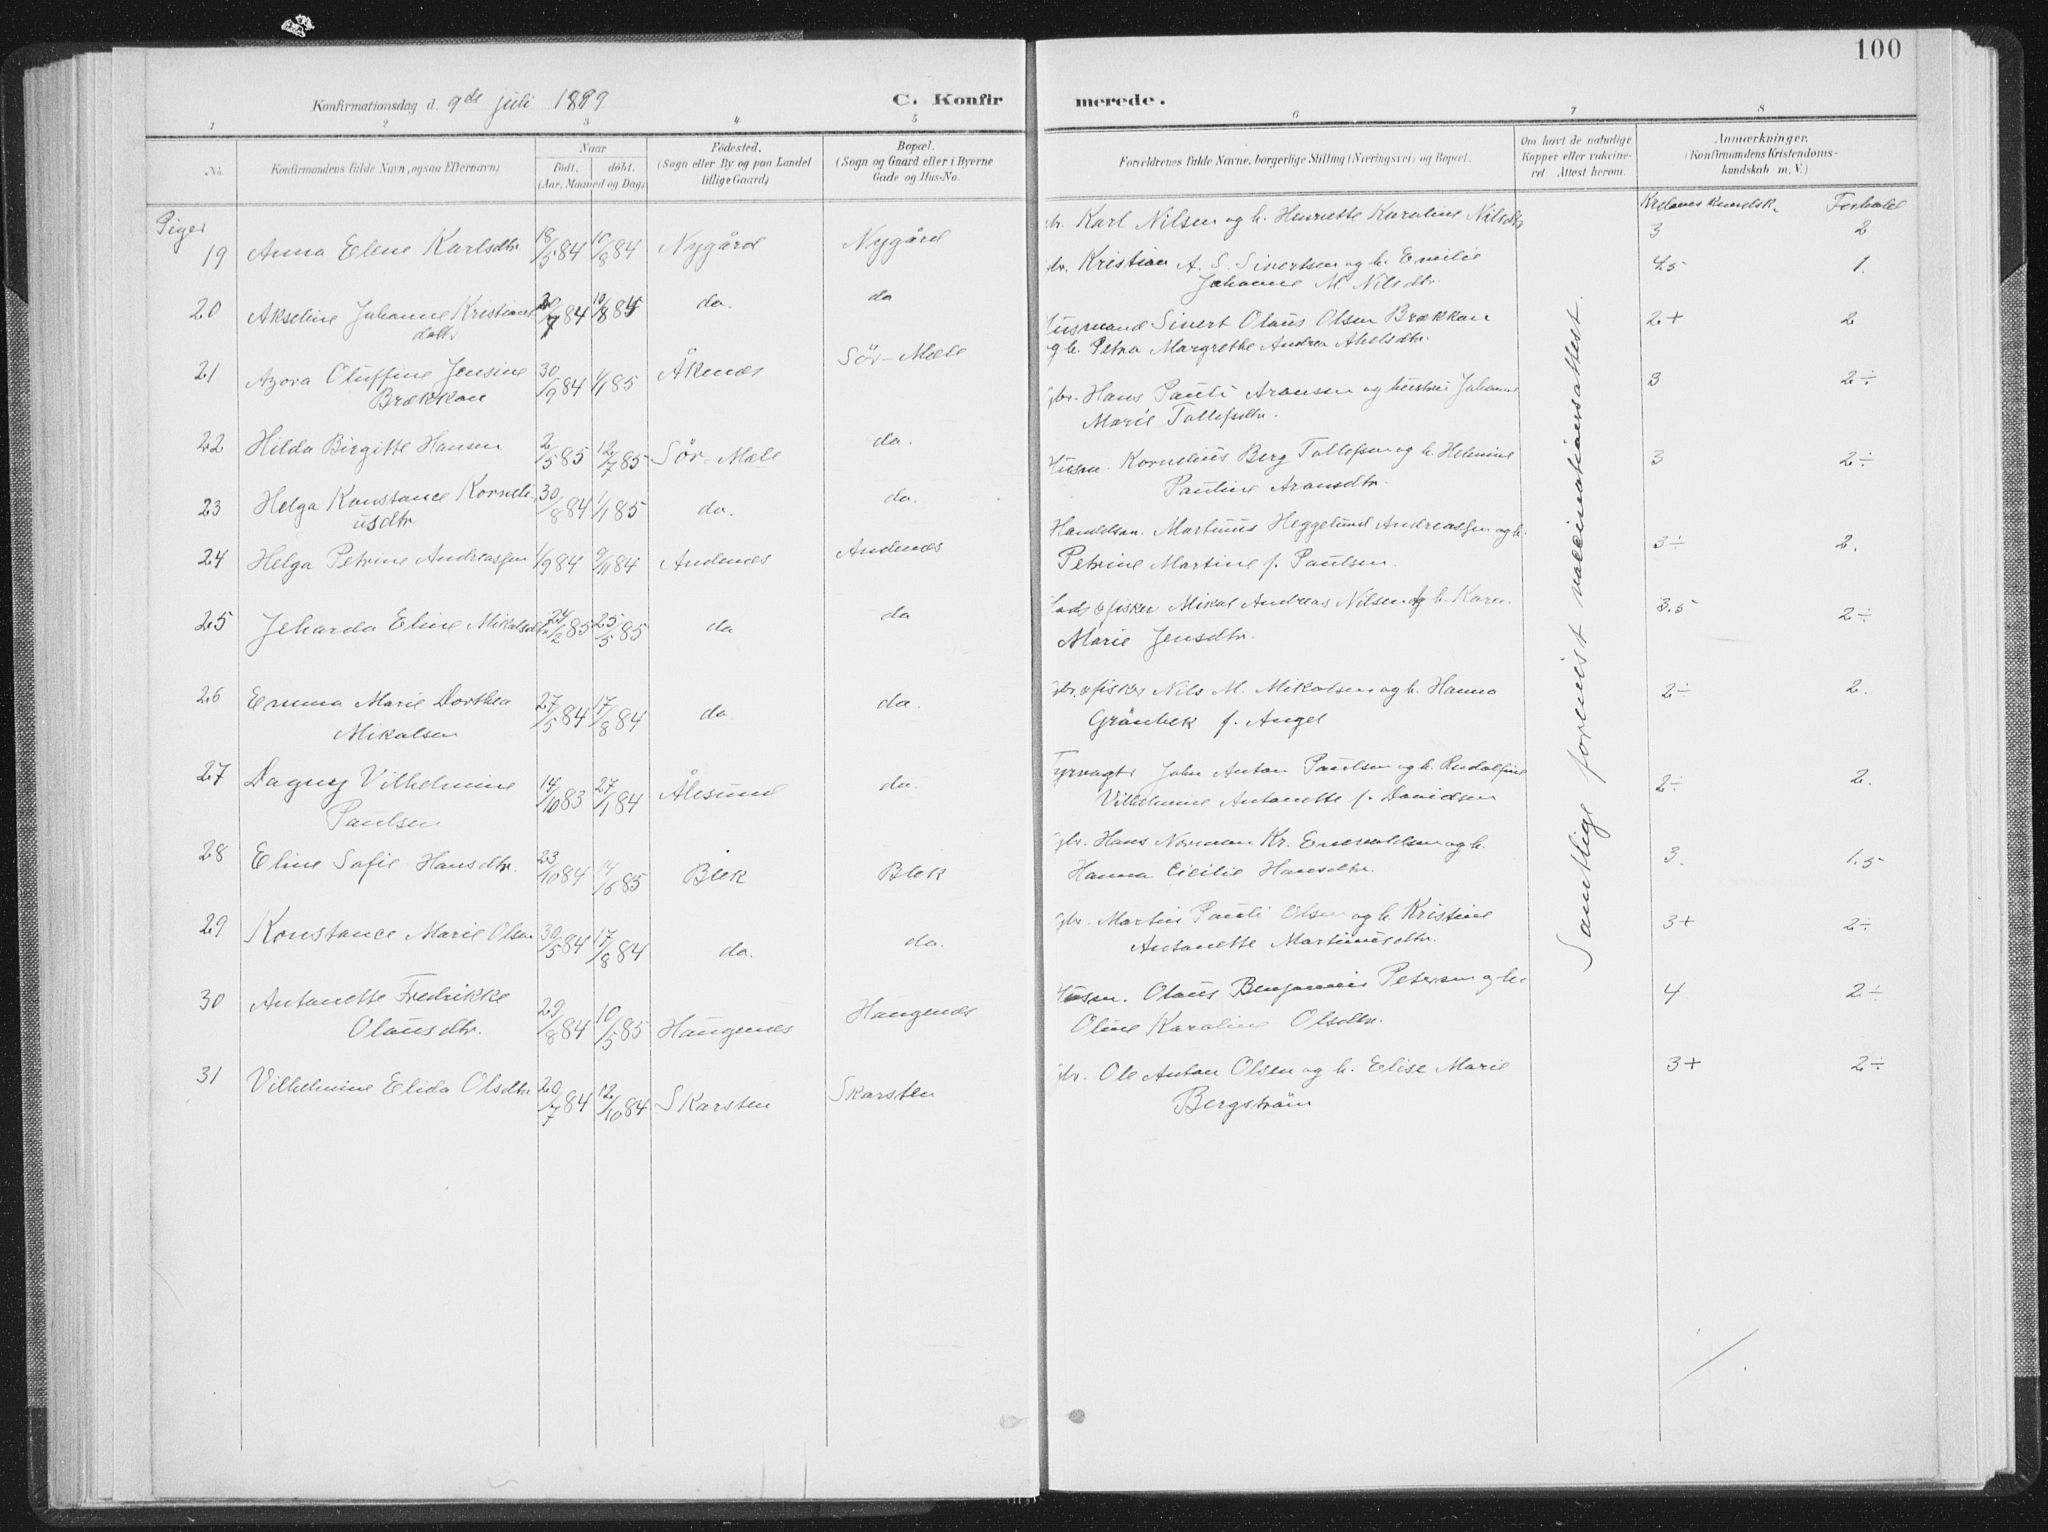 100
Konfirmationsdag d. 9de juli 1899
C. Konfirmerede.
1 2 3 4 5 6 7 8
No.
Konfirmandens fulde Navn, ogsaa Efternavn)
Naar
Födt. döbt.
(Aar, Maaned og Dag)
Födested.
(Sogn eller By og paa Landet
tillige Gaard)
Bopæl.
(Sogn og Gaard eller i Byerne
Gade og Hus-No.
Forældrenes fulde Navne, borgerlige Stilling (Næringsvei) og Bopæl.
Om havt de naturlige
Kopper eller vakcine-
ret Attest herom.
Anmærkninger.
(Konfirmandens Kristendoms-
kundskab m. V.)
Forhold
Piger
19 Anna Elene Karlsdtr 18/5 84 10/8 84 Nygård Nygård
Karl Nilsen og h. Henriette Karoline Nilsdtr 3 2
20 Akseline Johanne Kristians
dattr 10/8 84 do. do
Kristian A. S. Sivertsen og h. Emilie
Johanne M. Nilsdtr. 4.5 1.
21 Azora Oluffine Jensine
Brækkan 30/9 84 1/1 85 Åkenæs Sör-Mæle
Husmand Sivert Olaus Olsen Brækkan
og h. Petra Margrethe Andrea Abelsdtr. 2+ 2
22 Hilda Birgitte Hansen 2/5 85 12/7 85 Sör-Mæle do.
gbr. Hans Pauli Aronsen og hustru Johanne
Marie Tollefsdtr. 3 2÷
23 Helga Konstance Korneli-
usdtr 30/8 84 1/1 85 do. do.
Husm. Kornelius Berg Tollefsen og h. Helmine
Pauline Aronsdtr. 3 2÷
24 Helga Petrine Andreassen 1/9 84 9/11 84 Andenæs Andenæs
Handelsm. Martinus Heggelund Andreassen og h.
Petrine Martine f. Paulsen. 3÷ 2.
25 Jeharda Eline Mikalsdtr 24/2 85 25/5 85 do do
Lods & fisker Mikal Andreas Nilsen og h. Karen
Marie Jensdtr. 3.5 2÷
26 Emma Marie Dorthea
Mikalsen 27/5 84 17/8 84 do do.
gbr. & fisker Nils M. Mikalsen og h. Hanna
Grönbek f. Angel 2÷ 2.
27 Dagny Vilhelmine
Paulsen 14/10 83 27/1 84 Ålesund do.
Fyrvagter John Anton Paulsen og h. Rudolfine
Vilhelmine Antonette f. Davidsen 2÷ 2.
28 Eline Sofie Hansdtr. 23/10 84 14/6 85 Blek Blek
gbr. Hans Norman Kr. Enevoldsen og h.
Hanna Cicilie Hansdtr. 3. 1.5
29 Konstance Marie Olsen 30/5 84 17/8 84 do. do.
gbr. Martin Pauli Olsen og h. Kristine
Antonette Martinusdtr. 3+ 2÷
30 Antonette Fredrikke
Olausdtr. 29/8 84 10/5 85 Haugenes Haugenes
Husm. Olaus Benjamin Petersen og h.
Oline Karoline Olsdtr. 4 2÷
31 Vilhelmine Elida Olsdtr 20/7 84 12/10 84 Skarsten Skarsten
gbr. Ole Anton Olsen og h. Elise Marie
Bergström 3+ 2÷
Samtlige forevist vaccinationsattest.